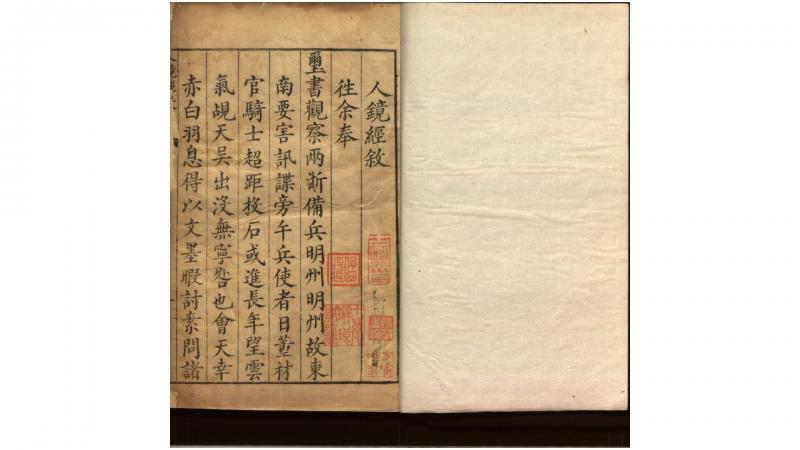 人鏡經敘
徃余奉
璽書觀察兩淛備兵明州明州故東
南要害訊諜旁午兵使者日董材
官騎士超距投石或進長年望雲
氣覘天吳出沒無寧晷也會天幸
赤白羽息得以文墨暇討素問諸